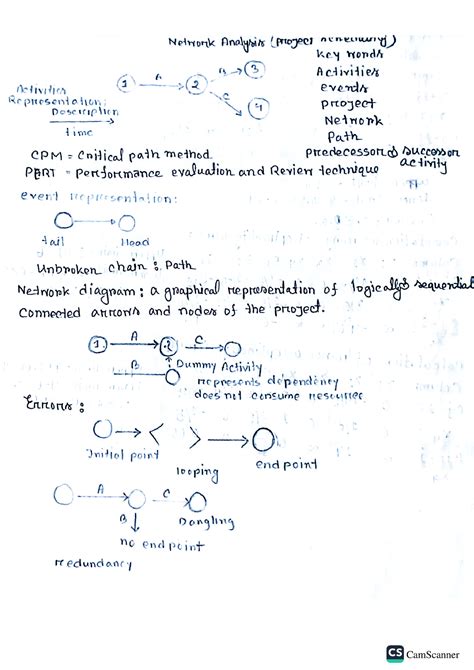 Network Analysis (project scheduling)
key words
Activities
events
project
Network
Path
predecessor & successor
activity
1 A 2 B 3
C 4
Activities
Representation:
Description
time
CPM = Critical path method
PERT = performance evaluation and Review technique
event Representation:
tail Head
Unbroken chain : Path
Network diagram : a graphical representation of logically & sequential
Connected arrows and nodes of the project.
1 A 2 C
B Dummy Activity
represents dependency
does not consume resources
Errors :
Initial point
looping
end point
A C
B Dangling
no end point
redundancy
CS CamScanner